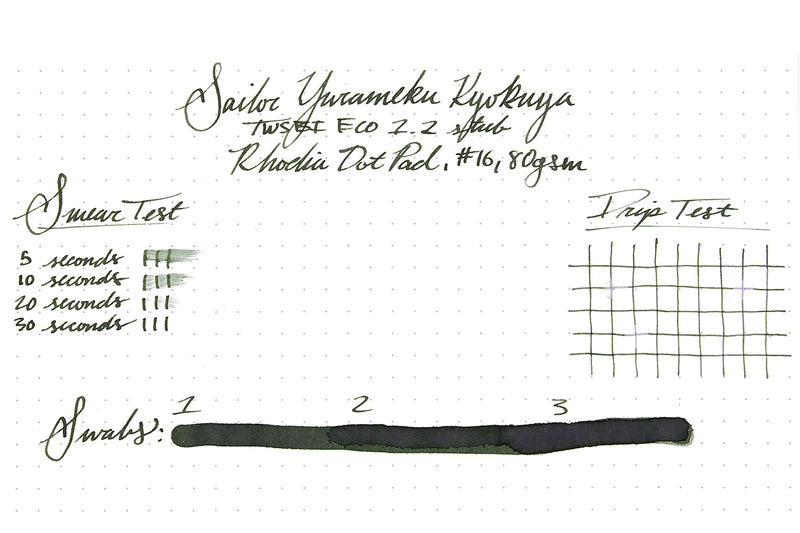 Sailor Yurameku Kyokuya
TWSBI ECO 1.1 stub
Rhodia Dot Pad, #16, 80gsm
Smear Test
5 seconds
10 seconds
20 seconds
30 seconds
Drip Test
Swabs:
1 2 3